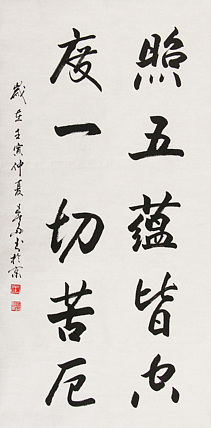 照五蕴皆空
度一切苦厄
岁在壬寅仲夏 书于京